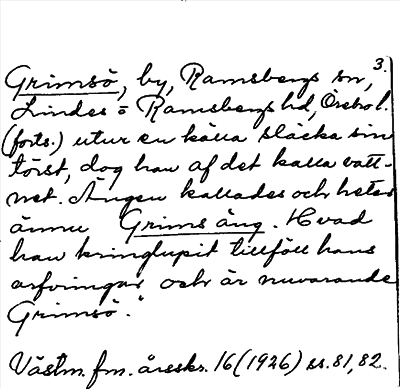 3.
Grimsö, by, Ramsbergs sn,
Lindes o Ramsbergs hd, Örebro l.
(forts.) utur en källa släcka sin
törst, dog han af det kalla vatt-
net. Ängen kallades och hetes
ännu Grims äng. Hvad
han kringlupit tillföll hans
arfvingar och är nuvarande
Grimsö."
Västm. fm. årsskr. 16 (1926) ss. 81, 82.